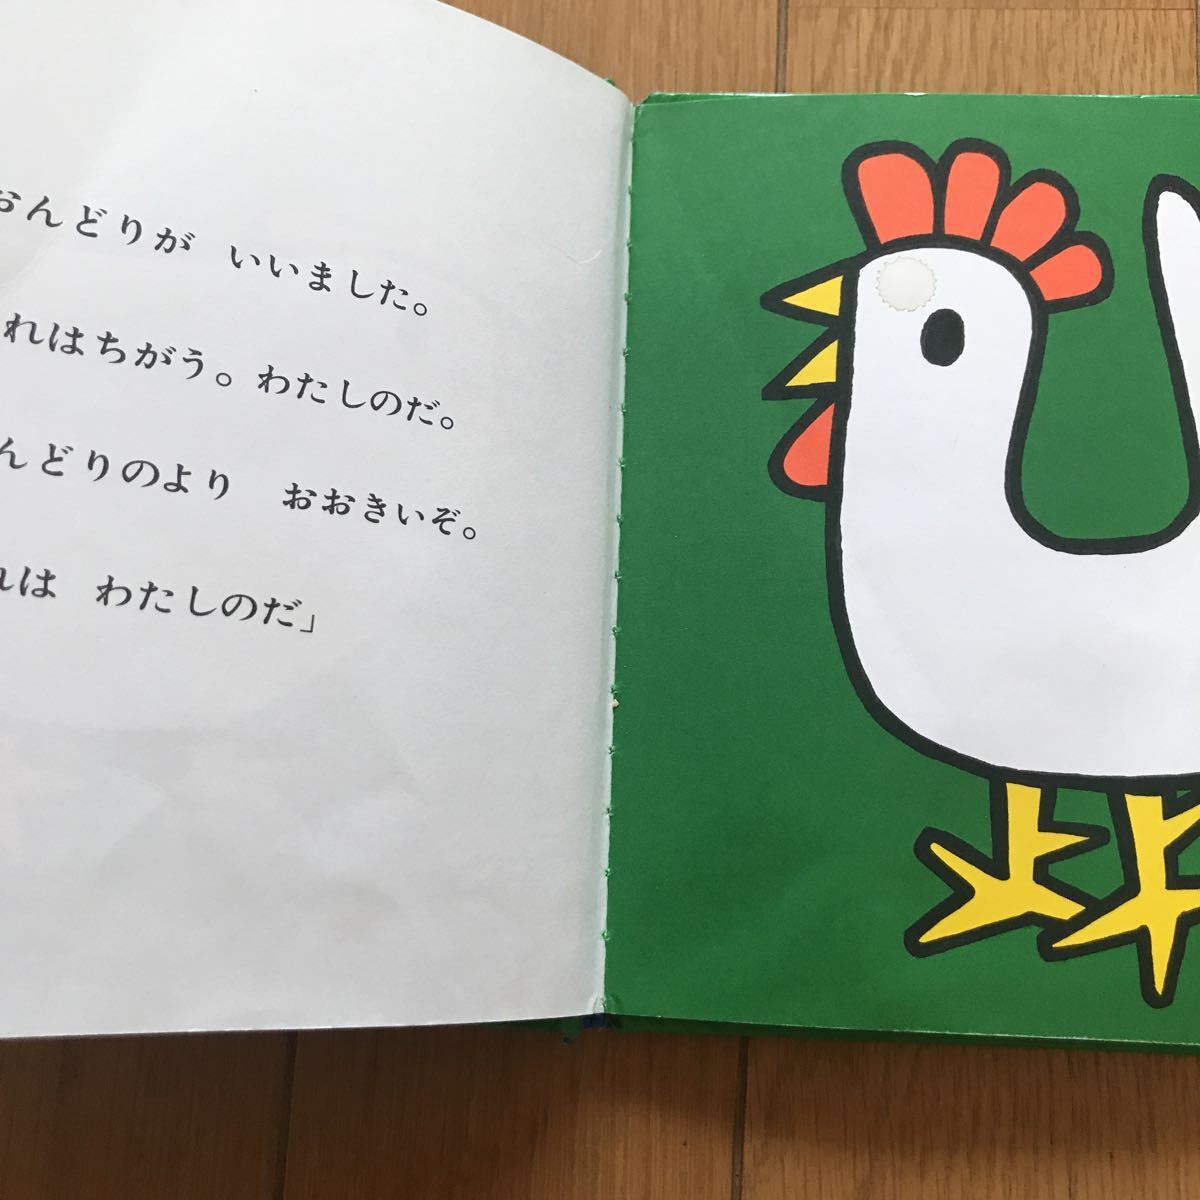 おんどりが いいました。
れはちがう。わたしのだ。
んどりのより おおきいぞ。
れは わたしのだ」